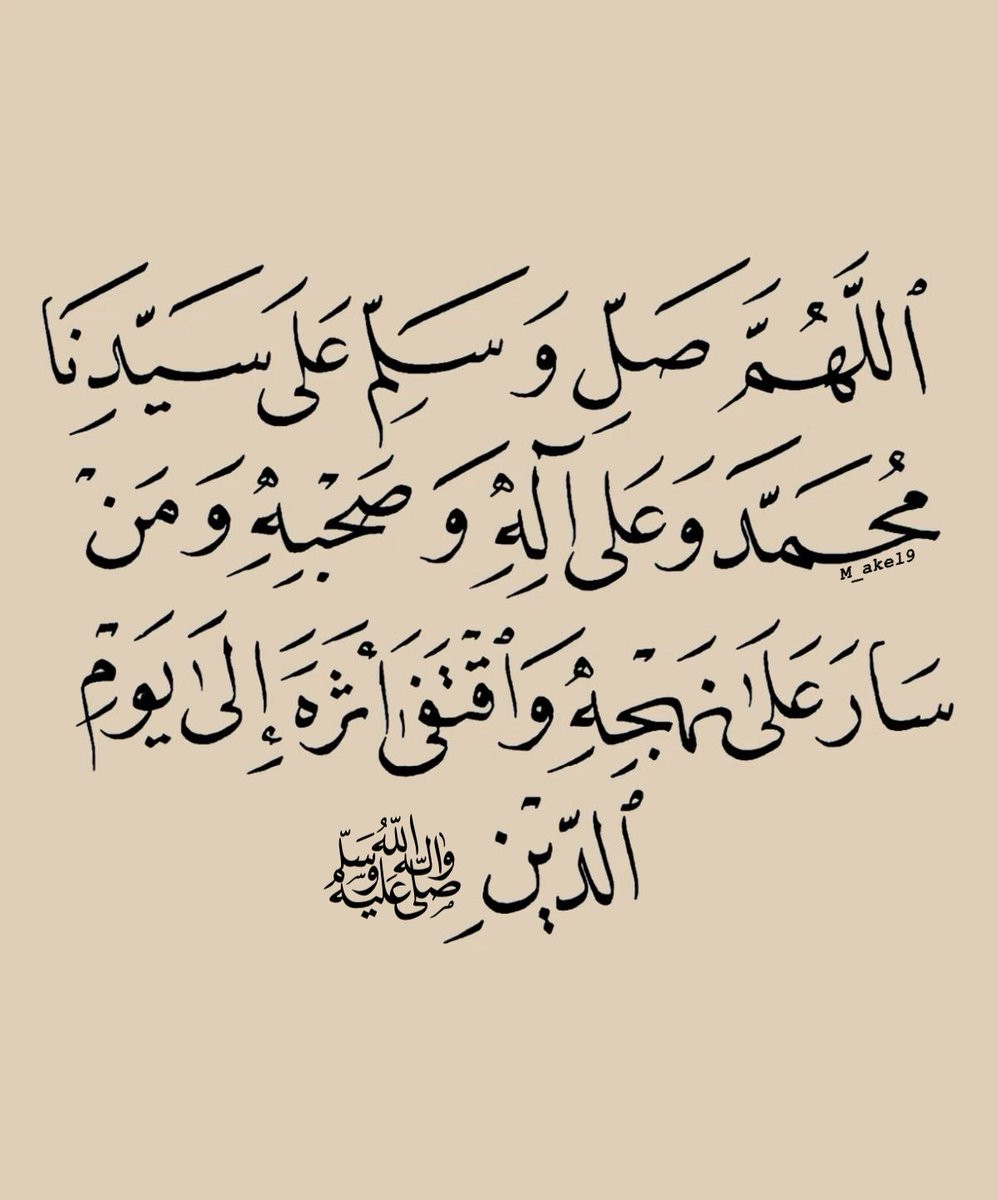 ٱللَّهُمَّ صَلِّ وَ سَلِّمْ عَلَى سَيِّدِنَا
مُحَمَّدَ وَعَلَى آلِهِ وَ صَحْبِهِ وَ مَنْ
M_ake19
سَارَ عَلَىٰ نَهْجِهِ وَٱقْتَفَىٰ أَثَرَهَ إِلَىٰ يَوْمِ
ٱلدِّيْنِ صلى الله عليه واله وسلم